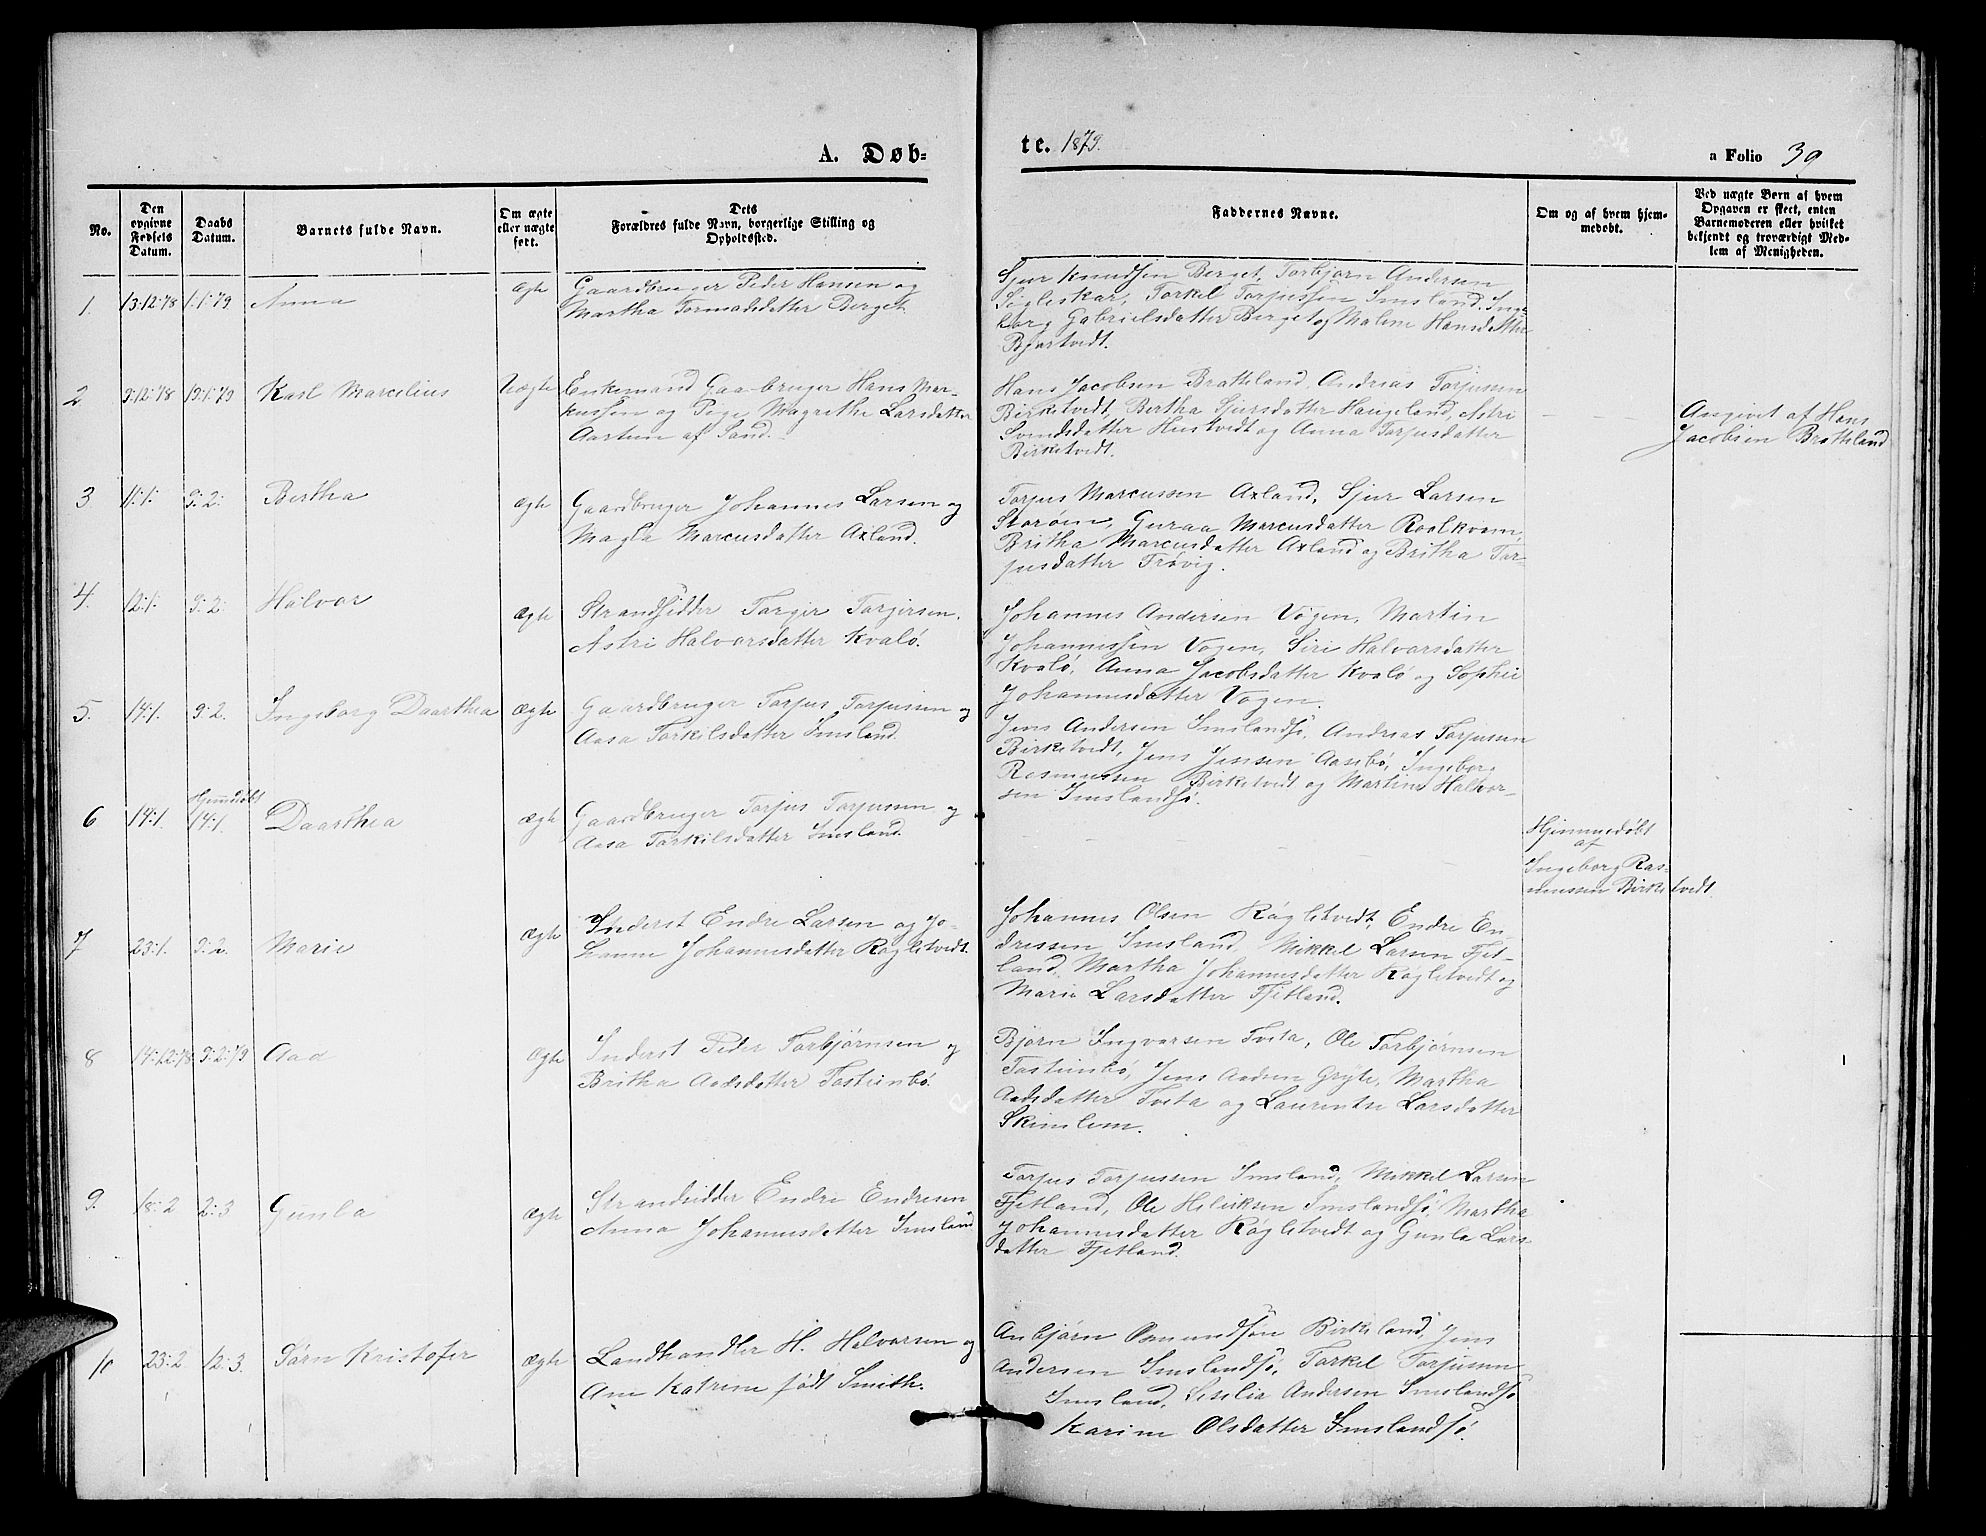 A. Døb-
te. 1879.
a Folio 39
No.
Den
opgivne
Fødsels
Datum.
Daabs
Datum.
Barnets fulde Navn.
Om ægte
eller uægte
født.
Dets
Forældres fulde Navn, borgerlige Stilling og
Opholdssted.
Faddernes Navne.
Om og af hvem hjem-
medøbt.
Ved uægte Børn af hvem
Opgaven er skeet, enten
Barnemoderen eller hvilket
bekjendt og troværdigt Med-
lem af Menigheden.
1. 13:12:78 1:1:79 Anna ægte
Gaardbruger Peder Hansen og
Martha Tormodsdatter Berget
Sjur Knudsen Berget, Torbjørn Andersen
Søgleskar, Torkel Torjussen Imsland, Inge-
borg Gabrielsdatter Berget og Malene Hansdatter
Bjertvedt.
2 9:12:78 19:1:79 Karl Marcelius Uægte
Enkemand Gaarbruger Hans Mar-
kussen og Pige Magrethe Larsdatter
Aartun af Sand.
Hans Jacobsen Bratteland, Andreas Torjussen
Birketvedt, Bertha Sjursdatter Haugeland, Astri
Svendsdatter Hustvedt og Anna Torjusdatter
Birketvedt.
Angivet af Hans
Jacobsen Bratteland
3 11:1: 9:2: Bertha ægte
Gaardbruger Johannes Larsen og
Magla Marcusdatter Axland.
Torjus Marcussen Axland, Sjur Larsen
Storøen, Guraa Marcusdatter Roalkvam,
Britha Marcusdatter Axland og Britha Tor-
jusdatter Trøvig.
4. 12:1: 9:2: Halvor Ægte
Strandsidder Torger Torjersen,
Astri Halvorsdatter Kvalø.
Johannes Andersen Vågen, Martin
Johannessen Vogen, Siri Halvorsdatter
Kvalø, Anna Jacobsdatter Kvalø og Sophie
Johannesdatter Vogen.
5. 14:1. 9:2. Ingeborg Daarthea Ægte
Gaardbruger Torjus Torjussen og
Aasa Torkilsdatter Imsland
Jens Andersen Imslandsø, Andreas Torjussen
Birketvedt, Jens Jensen Aasebø, Ingebor
Rasmussen Birketvedt og Martine Halvor-
sen Imslandsø.
6 14:1. Hjemmedøbt
14:1. Daarthea ægte
Gaardbruger Torjus Torjussen og
Aasa Torkilsdatter Imsland.
Hjemmedøbt
af
Ingeborg Ras-
mussen Birketvedt.
7 23:1. 9:2. Marie Ægte
Inderst Endre Larsen og Jo-
hanne Johannesdatter Røgletvedt.
Johannes Olsen Røgletvedt, Endre En-
dressen Imsland, Mikkel Larsen Fjet-
land, Martha Johannesdatter Røgletvedt og
Marie Larsdatter Fjetland.
8 14:12:78 9:2:79 Aad Ægte
Inderst Peder Torbjørnsen og
Britha Aadsdatter Tosteinbø.
Bjørn Ingvarsen Tveta, Ole Torbjørnsen
Tostinbø, Jens Aadsen Gryte, Martha
Aadsdatter Tveta og Laurentse Larsdatter
Skimlem.
9. 18:2 2:3 Gunla Ægte
Strandsidder Endre Endresen
Anna Johannesdatter Imsland
Torjus Torjussen Imsland, Mikkel Larsen
Fjetland, Ole Heliksen Imslandsø, Martha
Johannesdatter Røgletvedt og Gunla Lars-
datter Fjetland.
10 23:2 12:3. Sørn Kristofer Ægte
Landhandler H. Halvorsen og
Ane Katrine født Smith.
Anbjørn Osmundsøn Birkeland, Jens
Andersen Imslandsø, Torkel Torjussen
Imsland, Seselia Andersen Imslandsø
Karine Olsdatter Imslandsø.